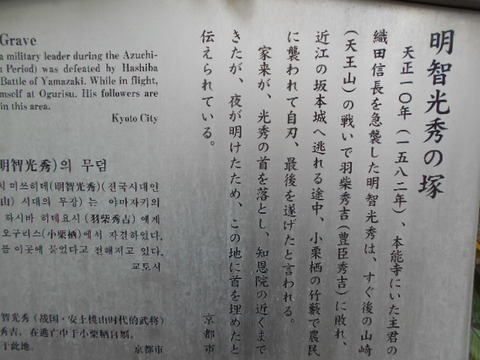 明智光秀の塚
天正一〇年（一五八二年）、本能寺にいた主君の
織田信長を急襲した明智光秀は、すぐ後の山崎
（天王山）の戦いで羽柴秀吉（豊臣秀吉）に敗れ、
近江の坂本城へ逃れる途中、小栗栖の竹藪で農民
に襲われて自刃、最後を遂げたと言われる。
家来が、光秀の首を落とし、知恩院の近くまで
きたが、夜が明けたため、この地に首を埋めたと
伝えられている。
京都市
Grave
a military leader during the Azuchi-
Period) was defeated by Hashiba
Battle of Yamazaki. While in flight,
mself at Ogurisu. His followers are
in this area.
Kyoto City
明智光秀)의 무덤
미쓰히데(明智光秀)(전국시대인
山) 시대의 무장)는 야마자키의
하시바 히데요시(羽柴秀吉)에게
오구리스(小栗栖)에서 자결하였다.
이곳에 묻었다고 전해지고 있다.
교토시
智光秀（战国・安土桃山时代的武将）
秀吉，在逃亡中于小栗栖自刎。
于此地。
京都市